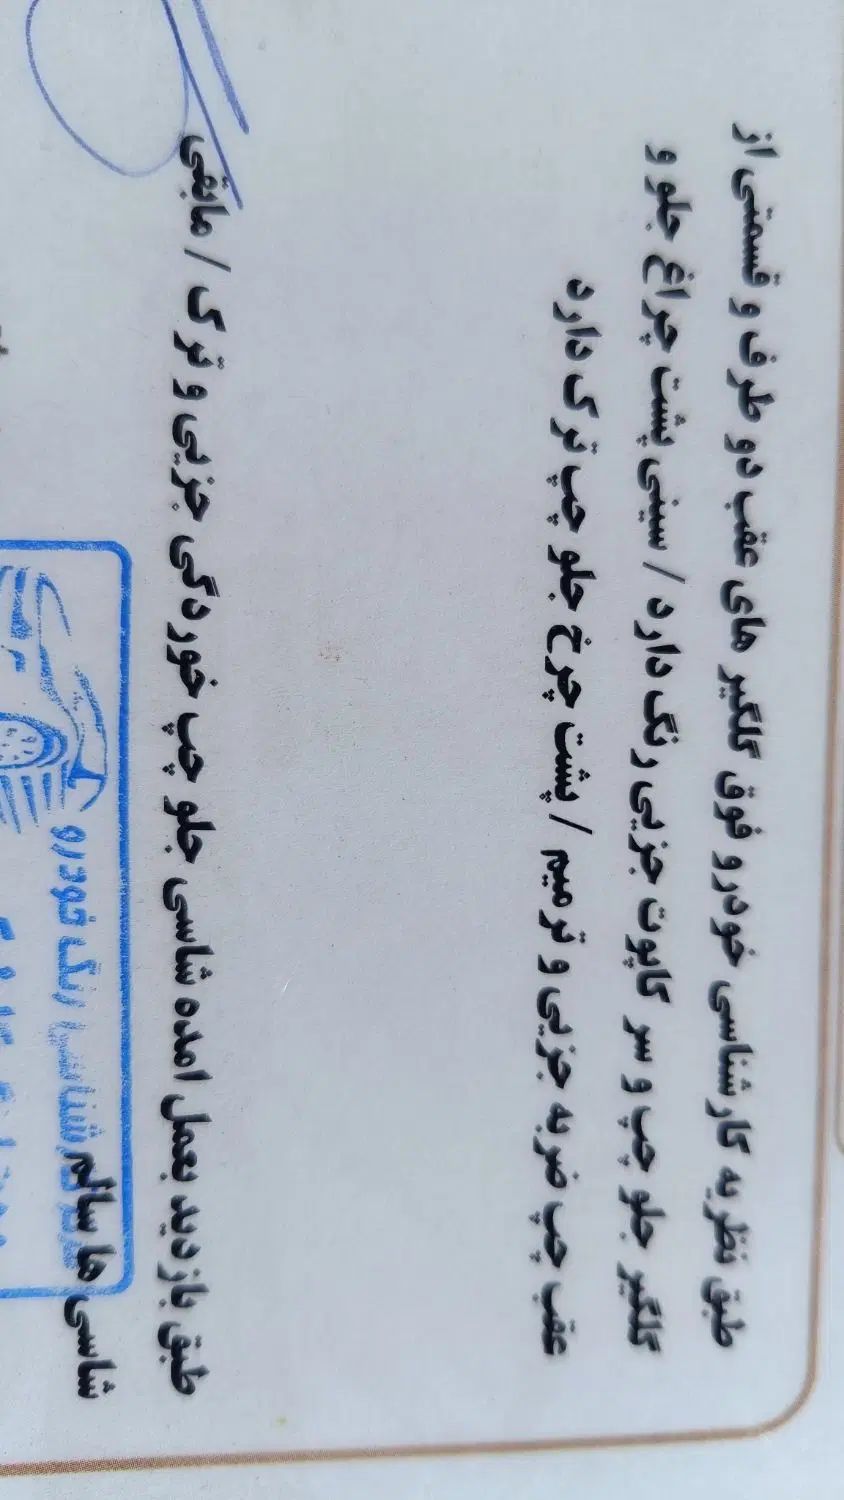 طبق نظریه کارشناسی خودرو فوق گلگیر های عقب دو طرف و قسمتی از
گلگیر جلو چپ و سر کاپوت جزیی رنگ دارد / سینی پشت چراغ جلو و
عقب چپ ضربه جزیی و ترمیم / پشت چرخ جلو چپ ترک دارد
طبق بازدید بعمل امده شاسی جلو چپ خوردگی جزیی و ترک / مابقی
شاسی ها سالم
کارشناسی رنگ خودرو